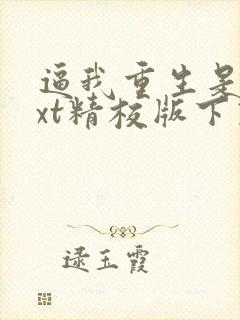 逼我重生是
xt精校版下
逯玉霞